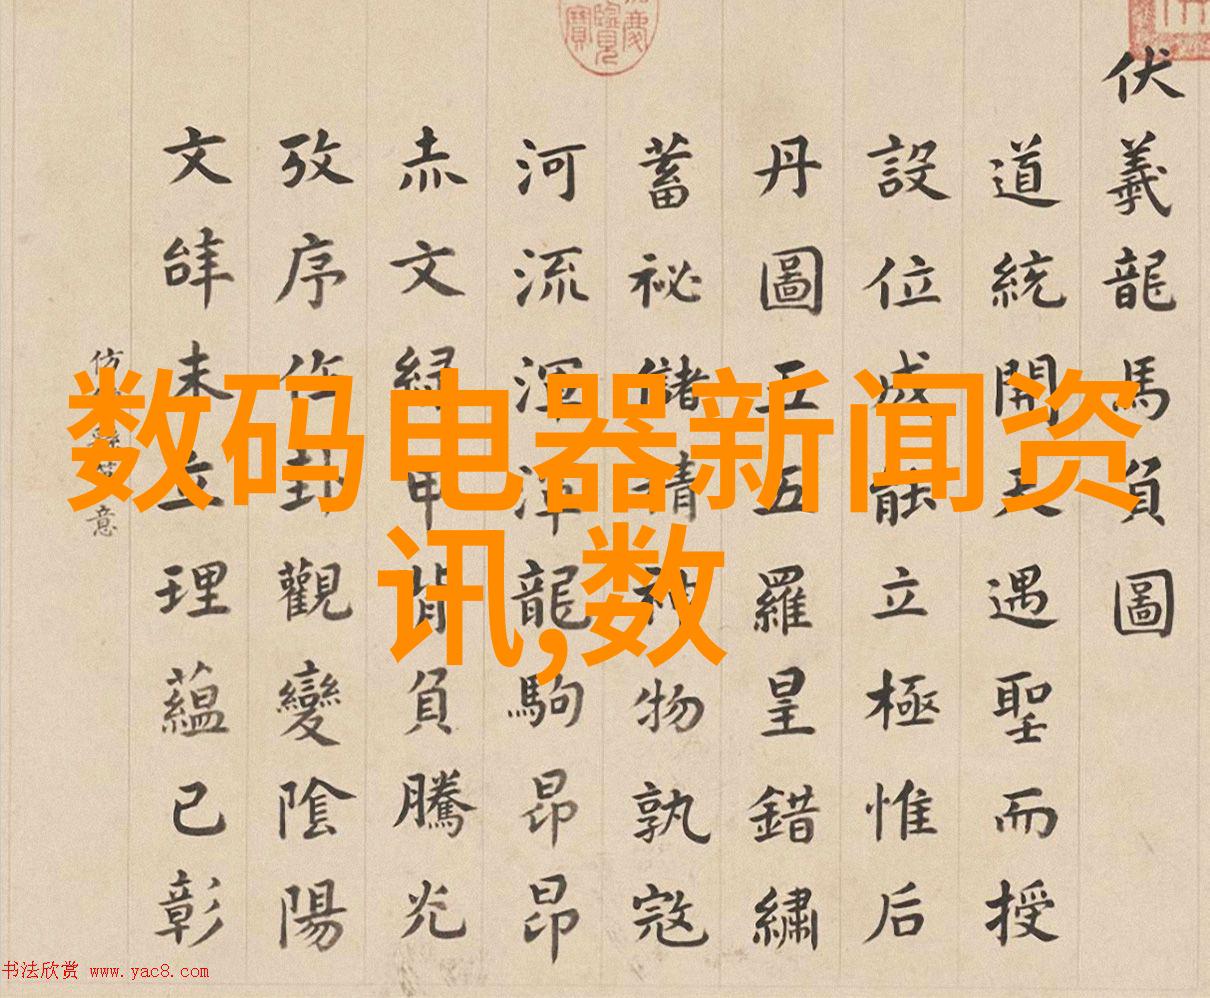 伏羲龍馬負圖
道統開天遇聖而授
設位成能立極惟后
丹圖五羅皇錯繡
蓄祕儲精神物孰寇
河流渾渾龍駒昂昂
赤文綠甲背負騰光
攷序作卦觀變陰陽
文辭未立理蘊已彰
仿意
慶覽寶
数码电器新闻资
讯,数
书法欣赏 www.yac8.com